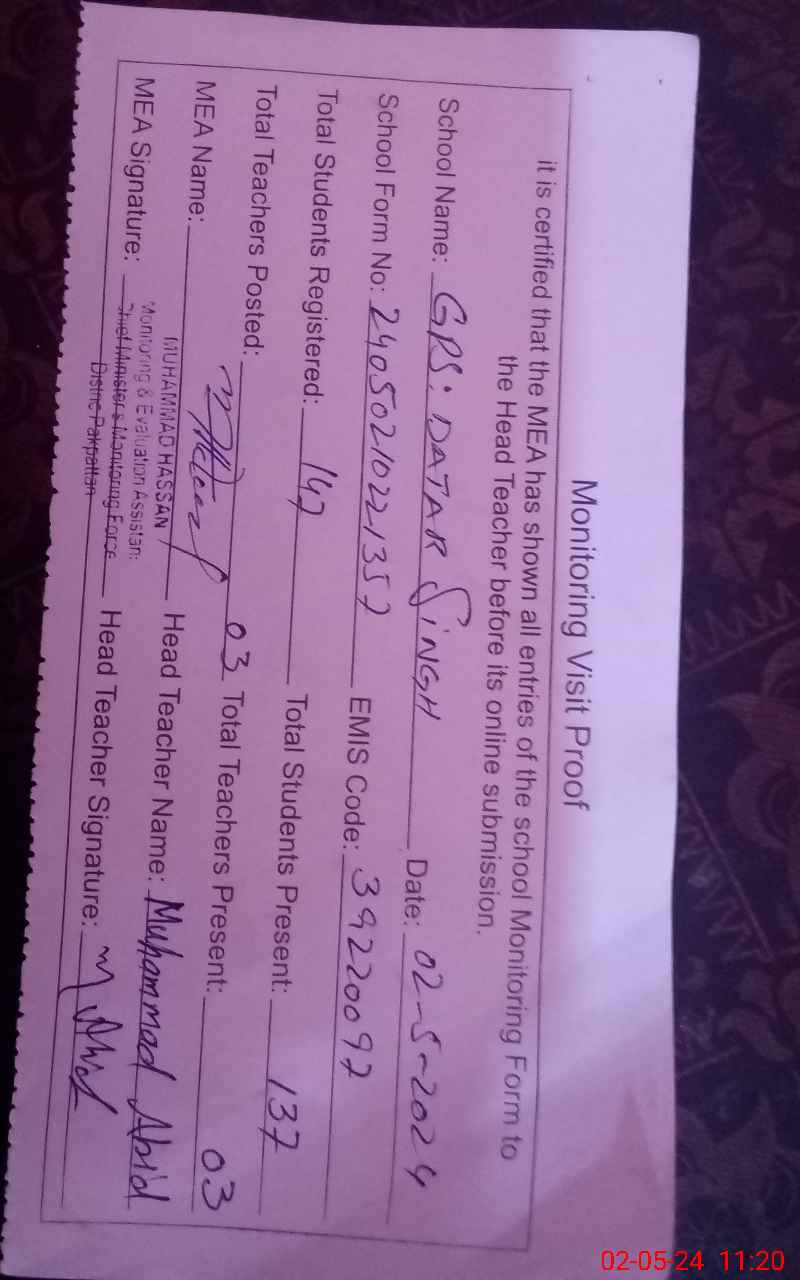 Monitoring Visit Proof
it is certified that the MEA has shown all entries of the school Monitoring Form to
the Head Teacher before its online submission.
School Name: GPS: DATAR SINGH Date: 02-5-2024
School Form No: 24050210221357 EMIS Code: 39220097
Total Students Registered: 147 Total Students Present: 137
Total Teachers Posted: 03 Total Teachers Present: 03
MEA Name: MUHAMMAD HASSAN Head Teacher Name: Muhammad Abid
Monitoring & Evaluation Assistan:
MEA Signature: Chief Minister's Monitoring Force Head Teacher Signature:
Distric Pakpattan
02-05-24 11:20